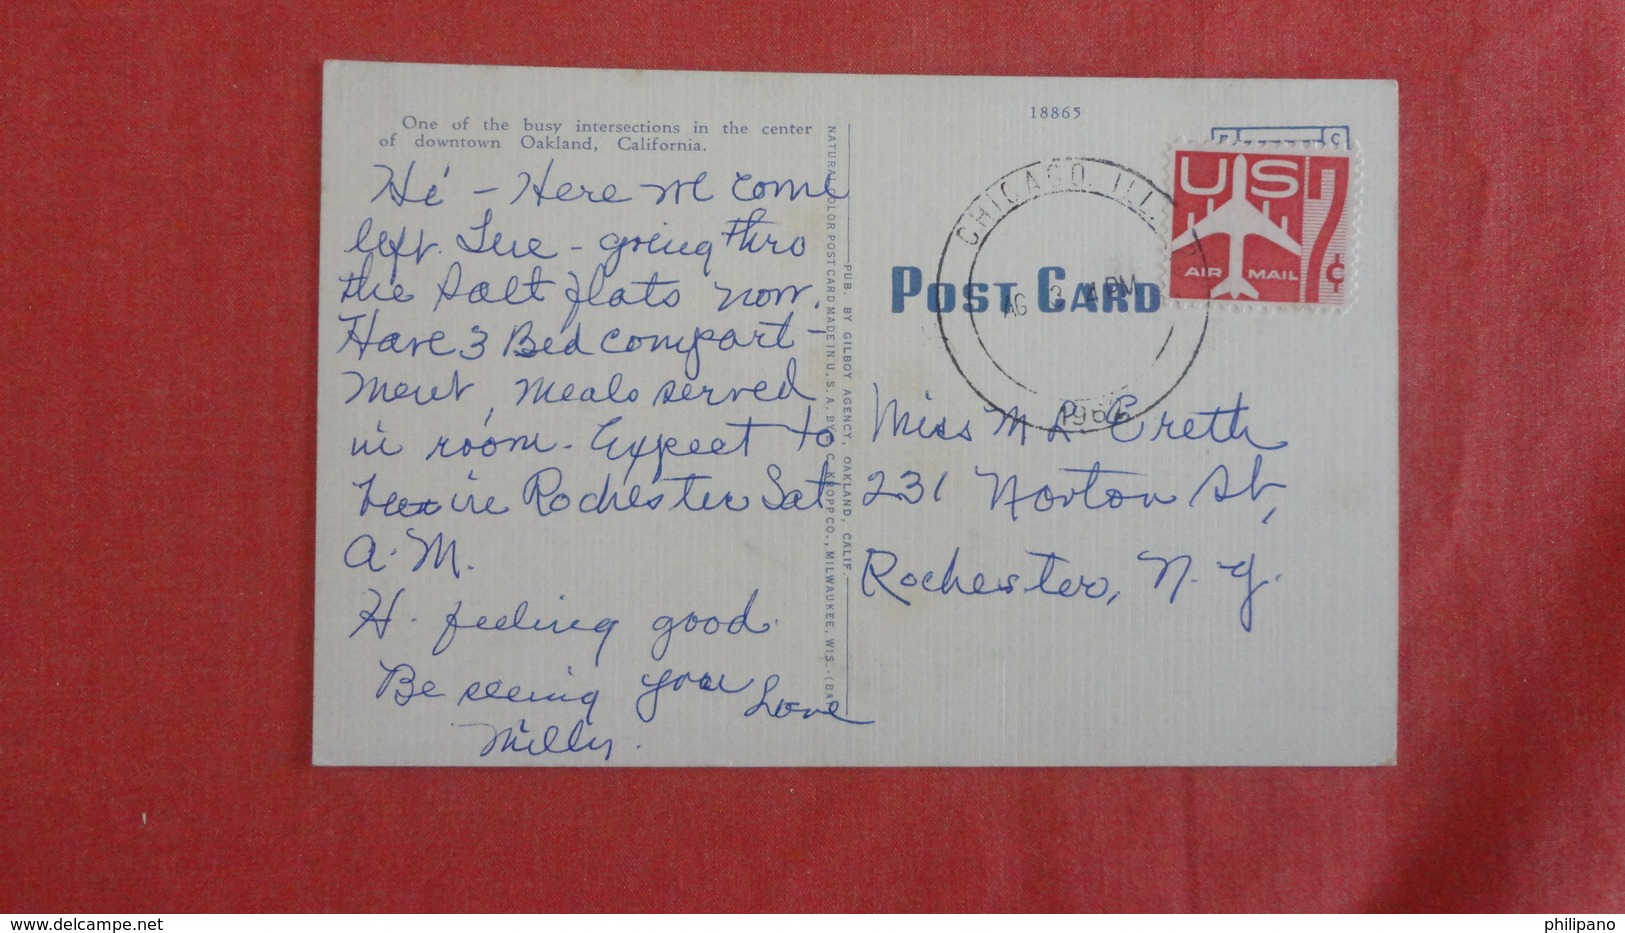 One of the busy intersections in the center
of downtown Oakland, California.
Hi - Here we come
left Tue - going thro
the Salt flats now.
Have 3 Bed compart-
ment, meals served
in room. Expect to
be in Rochester Sat
A.M.
H. feeling good.
Be seeing you Love
Milly.
NATURAL COLOR POST CARD MADE IN U. S. A. BY E. C. KROPP CO., MILWAUKEE, WIS.
PUB. BY GILBOY AGENCY, OAKLAND, CALIF.
18865
P C
CHICAGO, ILL.
AG 3 4 PM
US 7¢
AIR MAIL
POST CARD
Miss M L Ereth
231 Norton St,
Rochester, N. Y.
www.delcampe.net
philipano